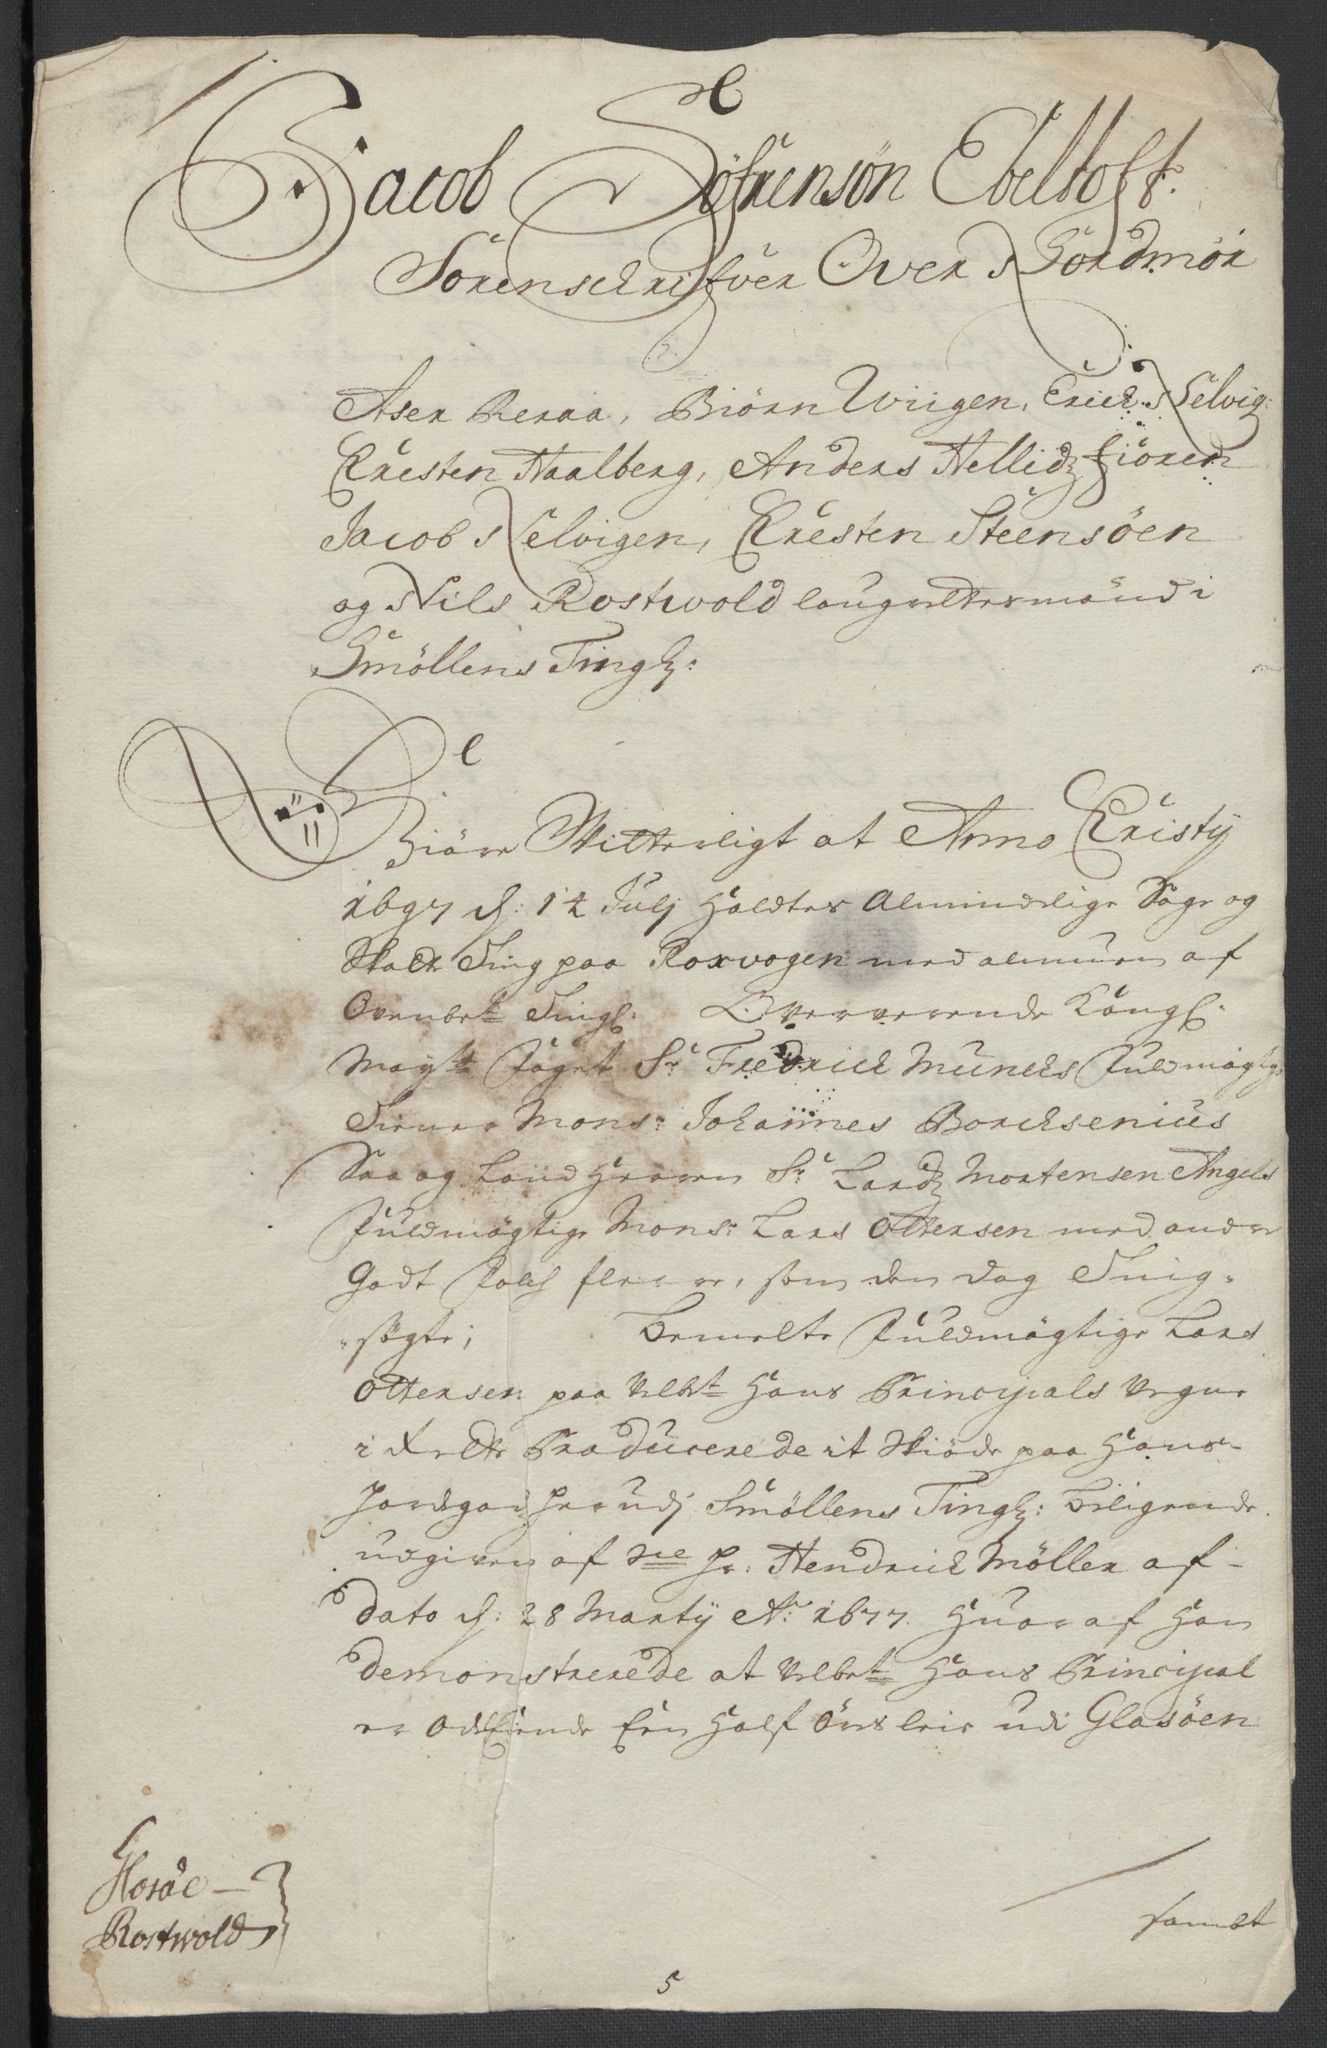 Jacob Söfrensön Ebeltoft
Sorenschrifver Over Nordmör
Aser Reraa, Biörn Wiigen, Erich Nelvig
Cresten Haalberg, Anders Hellidz fiören
Jacob Nelvigen, Cresten Steensöen
og Nils Rostwold laugrettesmænd i
Smöllens Tingl:
Giöre Witterligt at Anno Cristy
1697 d: 12 Julj holdtes Almindelige Sage og
Skatte Ting paa Roxvogen med almuen af
Ovenbete Tingl: Oververende Kongl:
Mayts foget Sr Fredrich Munchs fuldmægtig
Tiener Mons: Johannes Borchsenius
Saa og Land Herren Sr Lardz Mortensen Angels
fuldmægtige Mons: Lars Ottersen med andre
Godt folch flere, som den dag Ting-
søgte; Bemelte fuldmægtige Lars
Ottersen paa velbte Hans Principals vegne
i Rette Producerede it Skiöde paa Hans
Jordegodz her udj Smöllens Tingl: beligende
udgiven af Hr: Hendrich Möller af
dato d: 28 Marty Ao: 1677. Huoraf Han
demonstrerede at velbte Hans Principal
er Odel Eiende Een Half Öres leie udi Glasöen
sambt
Glosöe
Rostwold
5